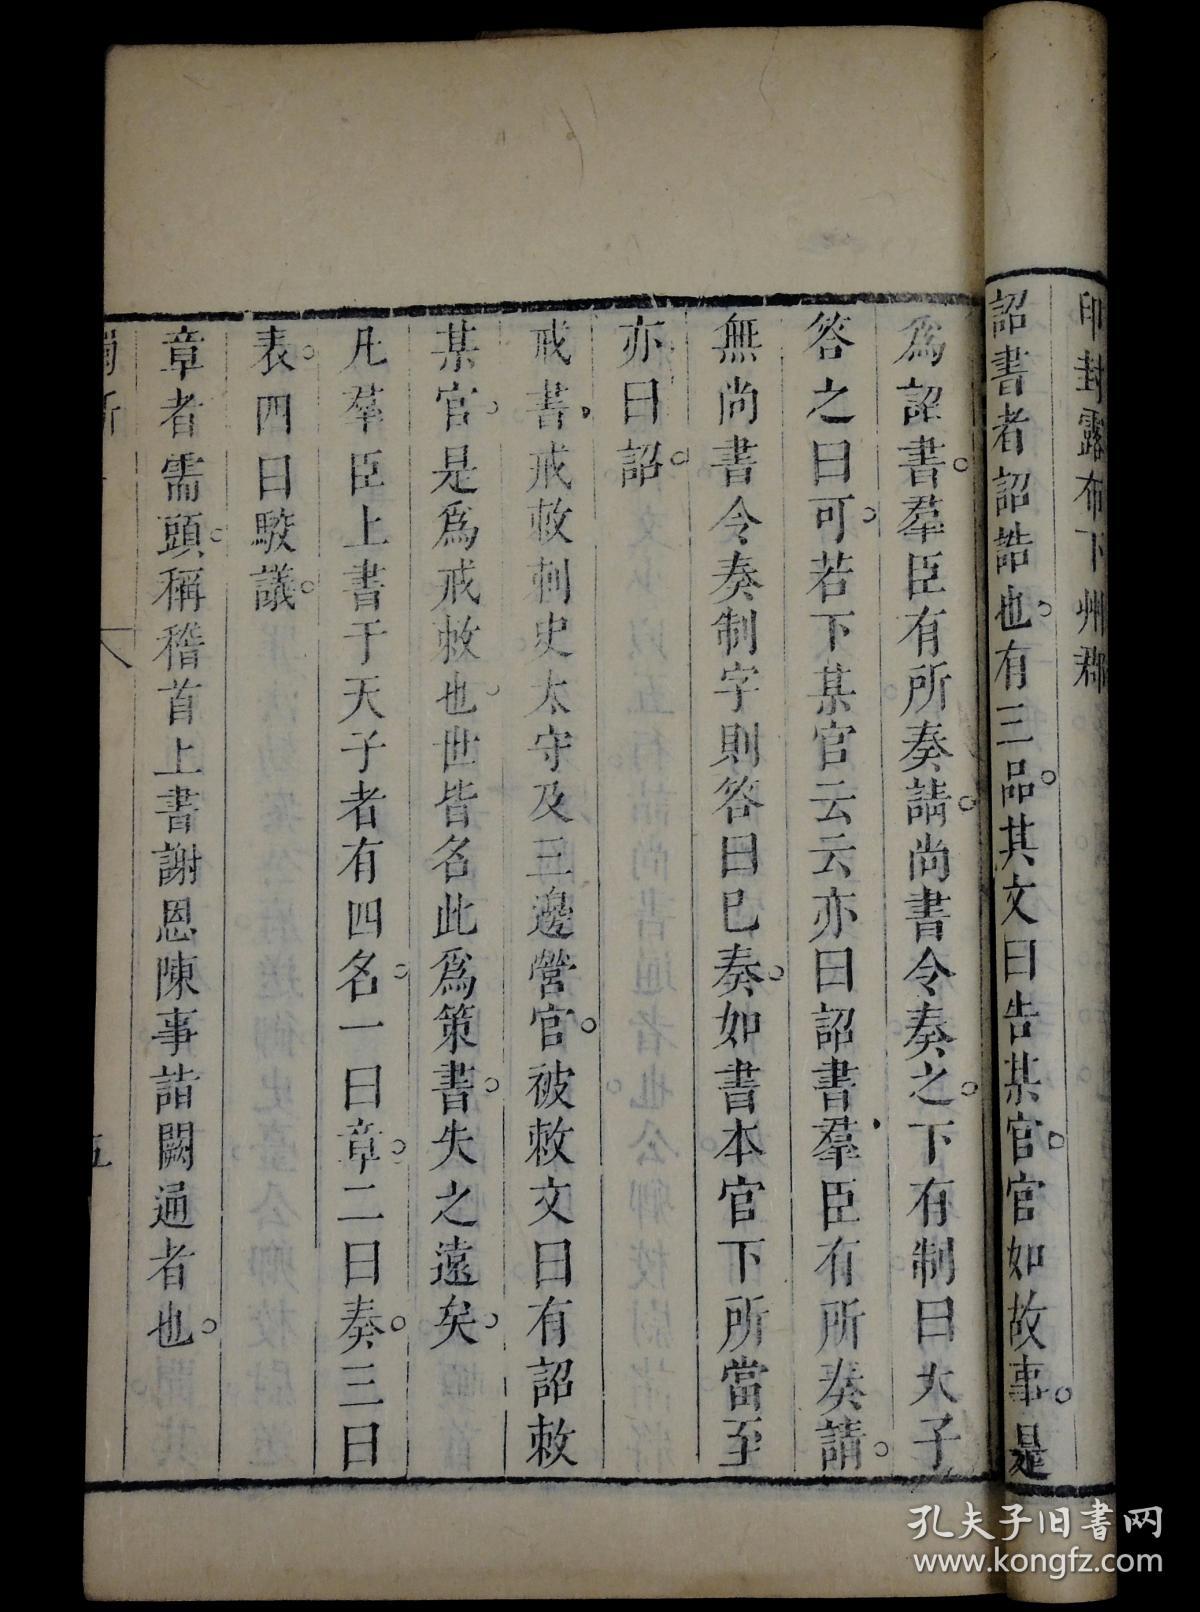 印封露布下州郡
詔書者詔誥也有三品其文曰告某官官如故事是
為詔書羣臣有所奏請尚書令奏之下有制曰天子
答之曰可若下某官云云亦曰詔書羣臣有所奏請
無尚書令奏制字則答曰已奏如書本官下所當至
亦曰詔
戒書戒敕刺史太守及三邊營官被敕文曰有詔敕
某官是為戒敕也世皆名此為策書失之遠矣
凡羣臣上書于天子者有四名一曰章二曰奏三曰
表四曰駮議
章者需頭稱稽首上書謝恩陳事詣闕通者也
五
孔夫子旧书网
www.kongfz.com